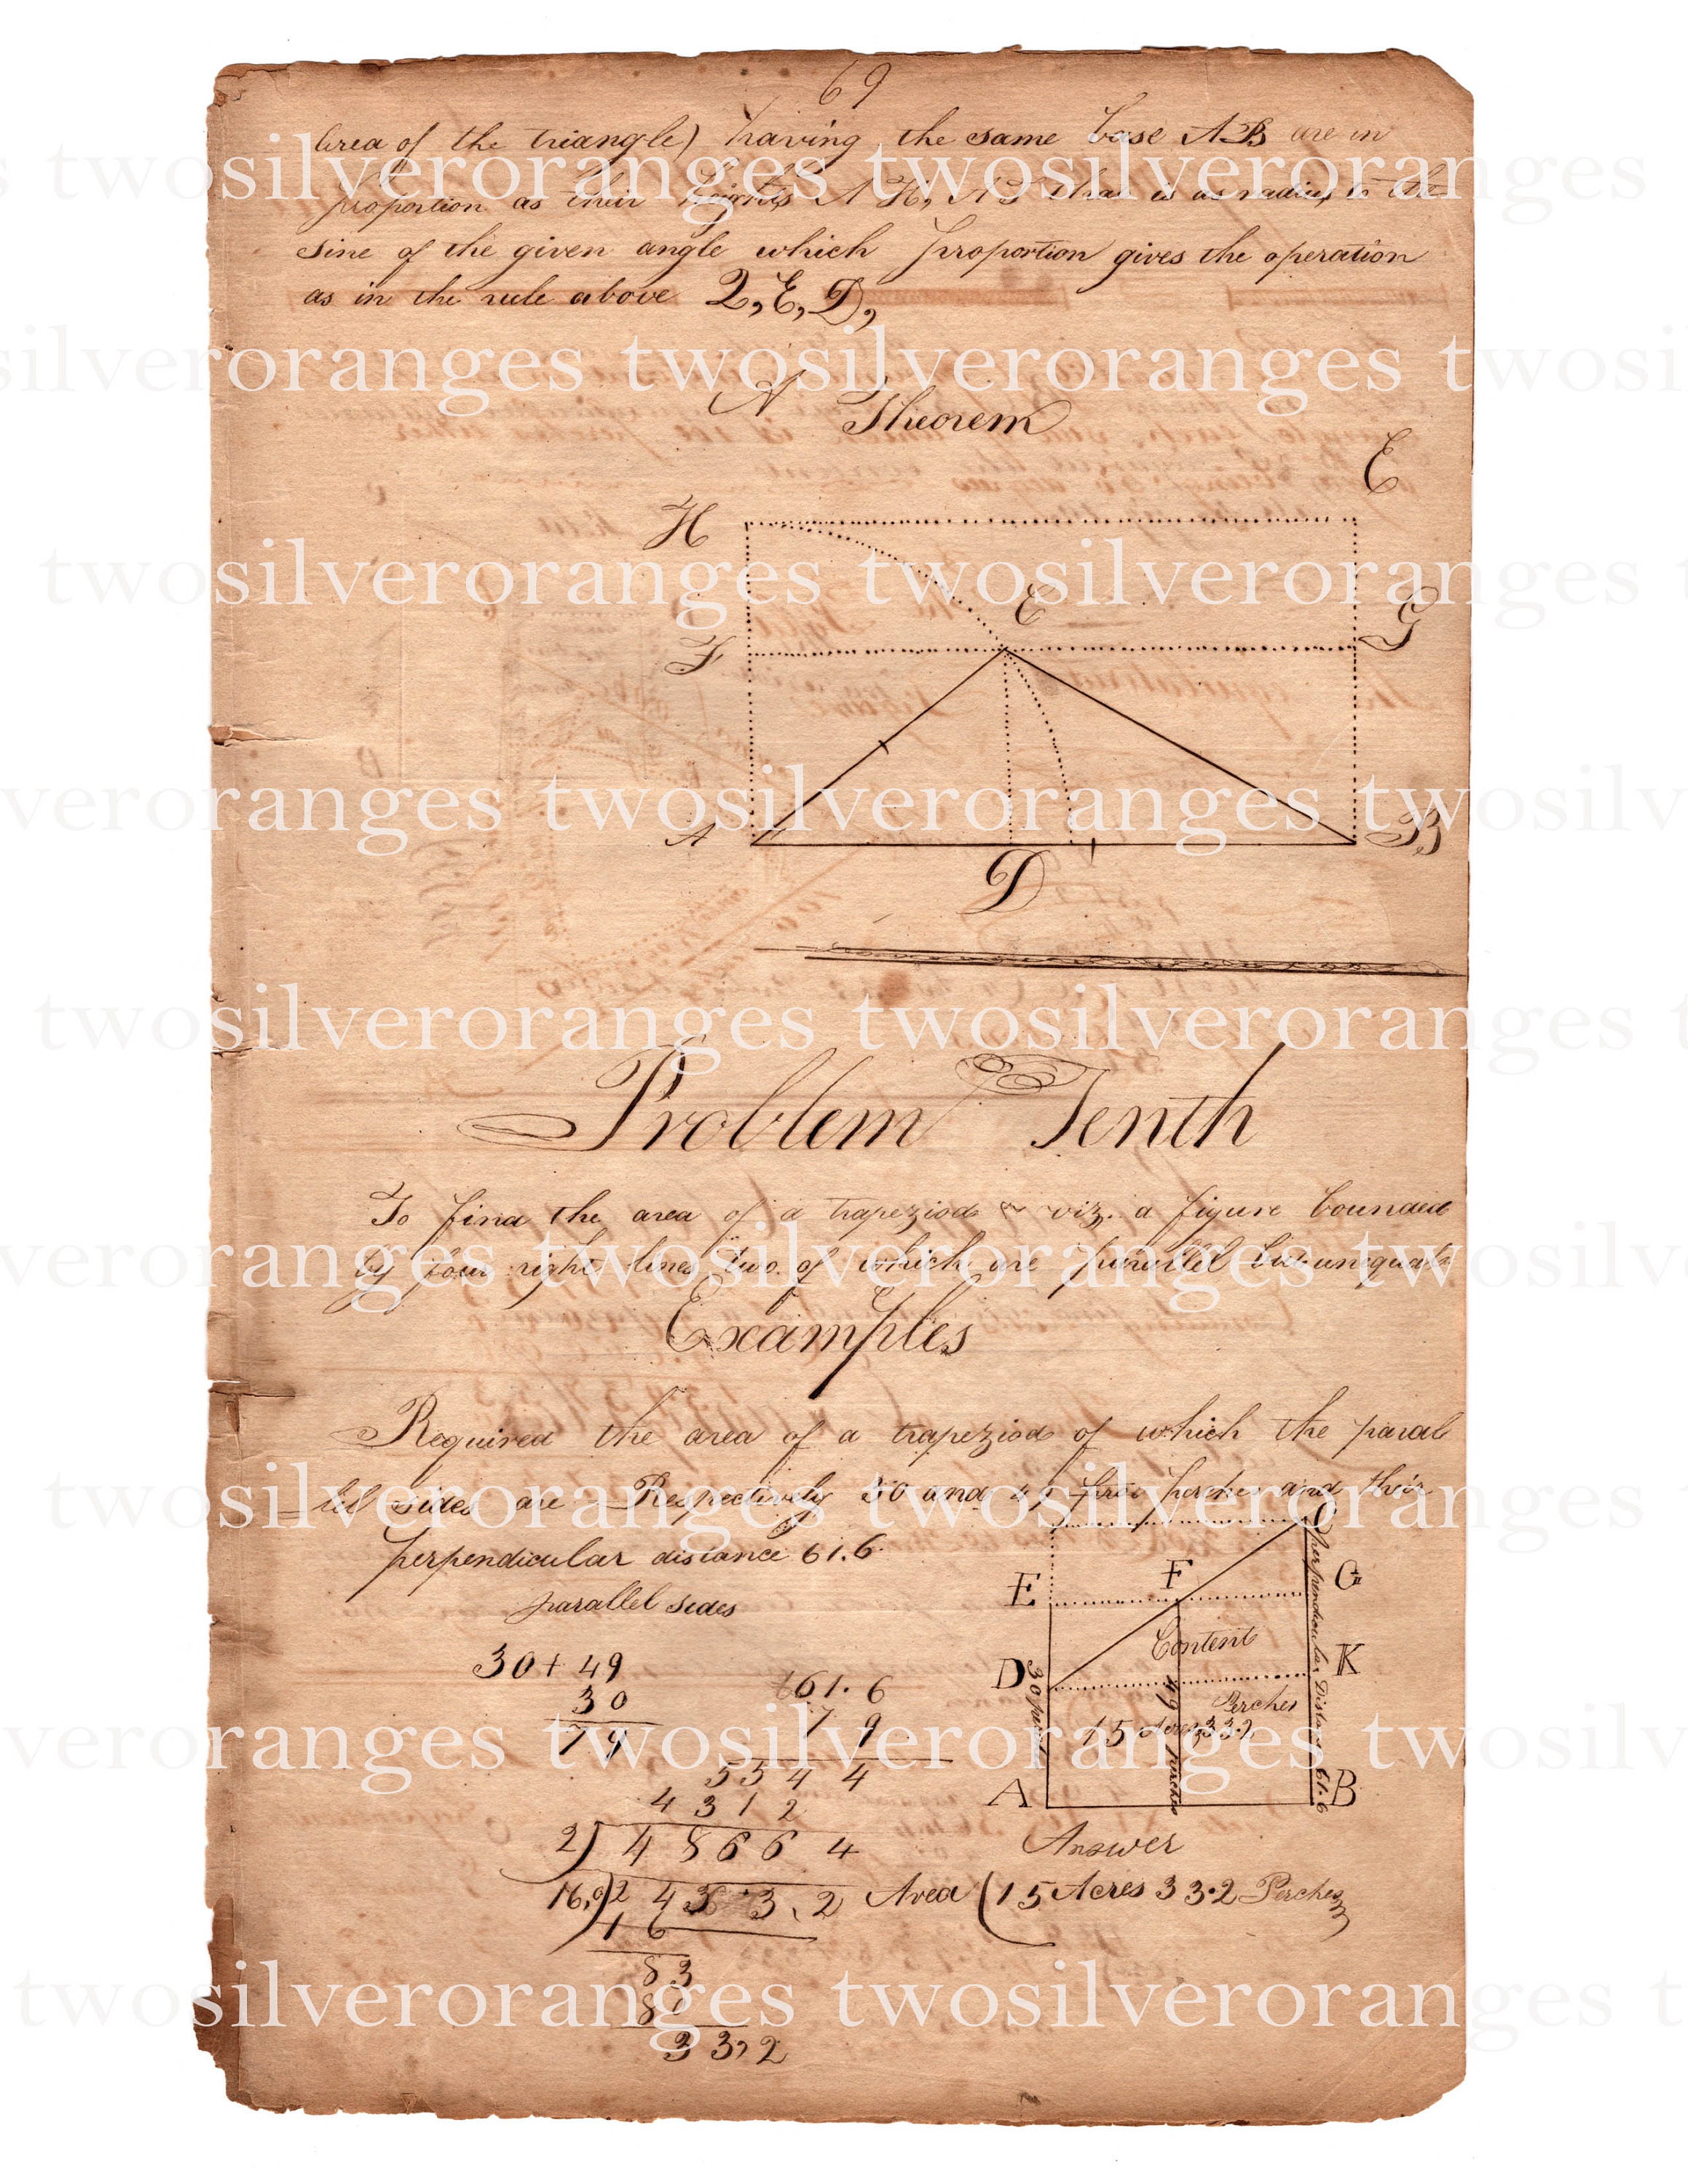 69
Area of the triangle) having the same base AB are in
proportion as their heights AH, AF that is as radius to the
sine of the given angle which proportion gives the operation
as in the rule above Q,E,D,
A Theorem
E
H
E
G
F
A
B
D
Problem Tenth
To find the area of a trapeziod or viz. a figure bounded
by four right lines two of which are parallel but unequal
Examples
Required the area of a trapeziod of which the paral
lel sides are Respectively 30 and 49 perches and their
perpendicular distance 61.6
parallel sides
C
E F G
Content
D K
30+49
30
79
61.6
79
5544
4312
2) 48664
16,0)2 43 3.2 Area (15 Acres 33.2 Perches
16
83
80
33,2
30
49 perches
Perches
15 Acres 33.2
perpendicular Distance 61.6
A B
Answer
twosilveroranges